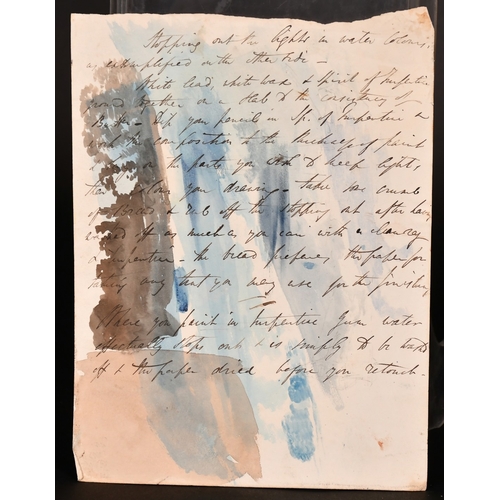 Stopping out the lights in water colours,
as exemplified on the other side –
White lead white wax & spirit of Turpentine
ground together on a slab to the consistency of
Butter – Dip your pencils in Sp. of Turpentine &
work the composition to the thickness of paint
on the parts you wish to keep light,
then colour your drawing – take some crumb
of Bread & rub off the stopping out after having
as much as you can with a clean rag
& turpentine – the bread prepares the paper for
any that you may use for the finishing
Where you paint in Turpentine Gum water
effectually stops out & is simply to be washed
off & the paper dried before you retouch –